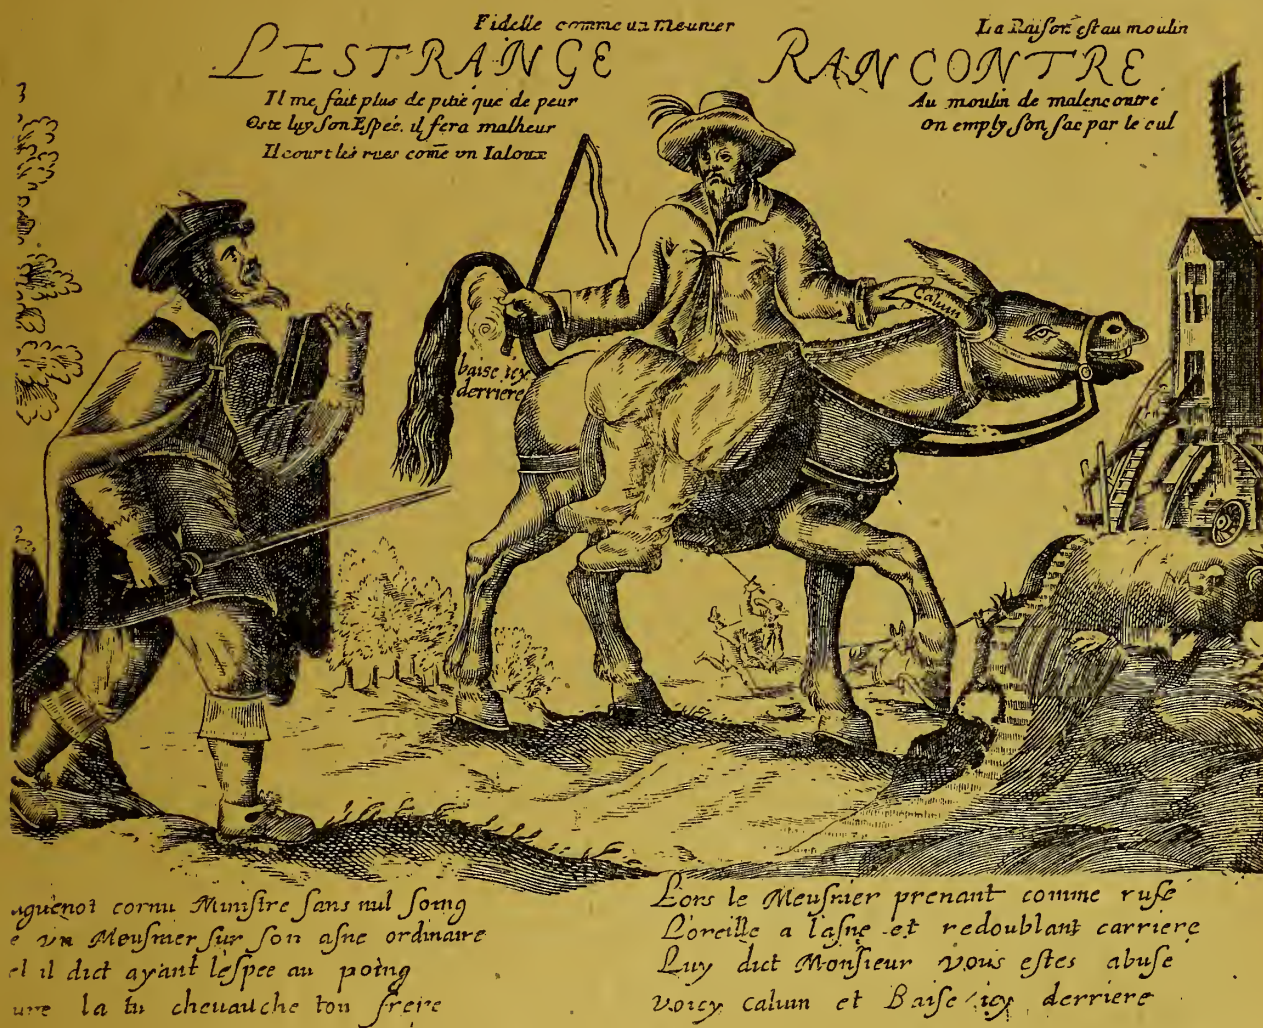 Fidelle comme un Meunier
La Raison est au moulin
LESTRANGE RANCONTRE
Il me fait plus de pitié que de peur
Oste luy son Espée. il fera malheur
Il court les rues come un Ialoux
Au moulin de malencontre
On emply son sac par le cul
Caluin
baise icy
derriere
uguenot cornu Ministre sans nul soing
e vn Meusnier sur son asne ordinaire
el il dict ayant lèspee au poing
la tu cheuauche ton freire
Lors le Meusnier prenant comme rusé
L'oreille a l'asne et redoublant carriere
Luy dict Monsieur vous estes abusé
voicy caluin et Baise icy derriere